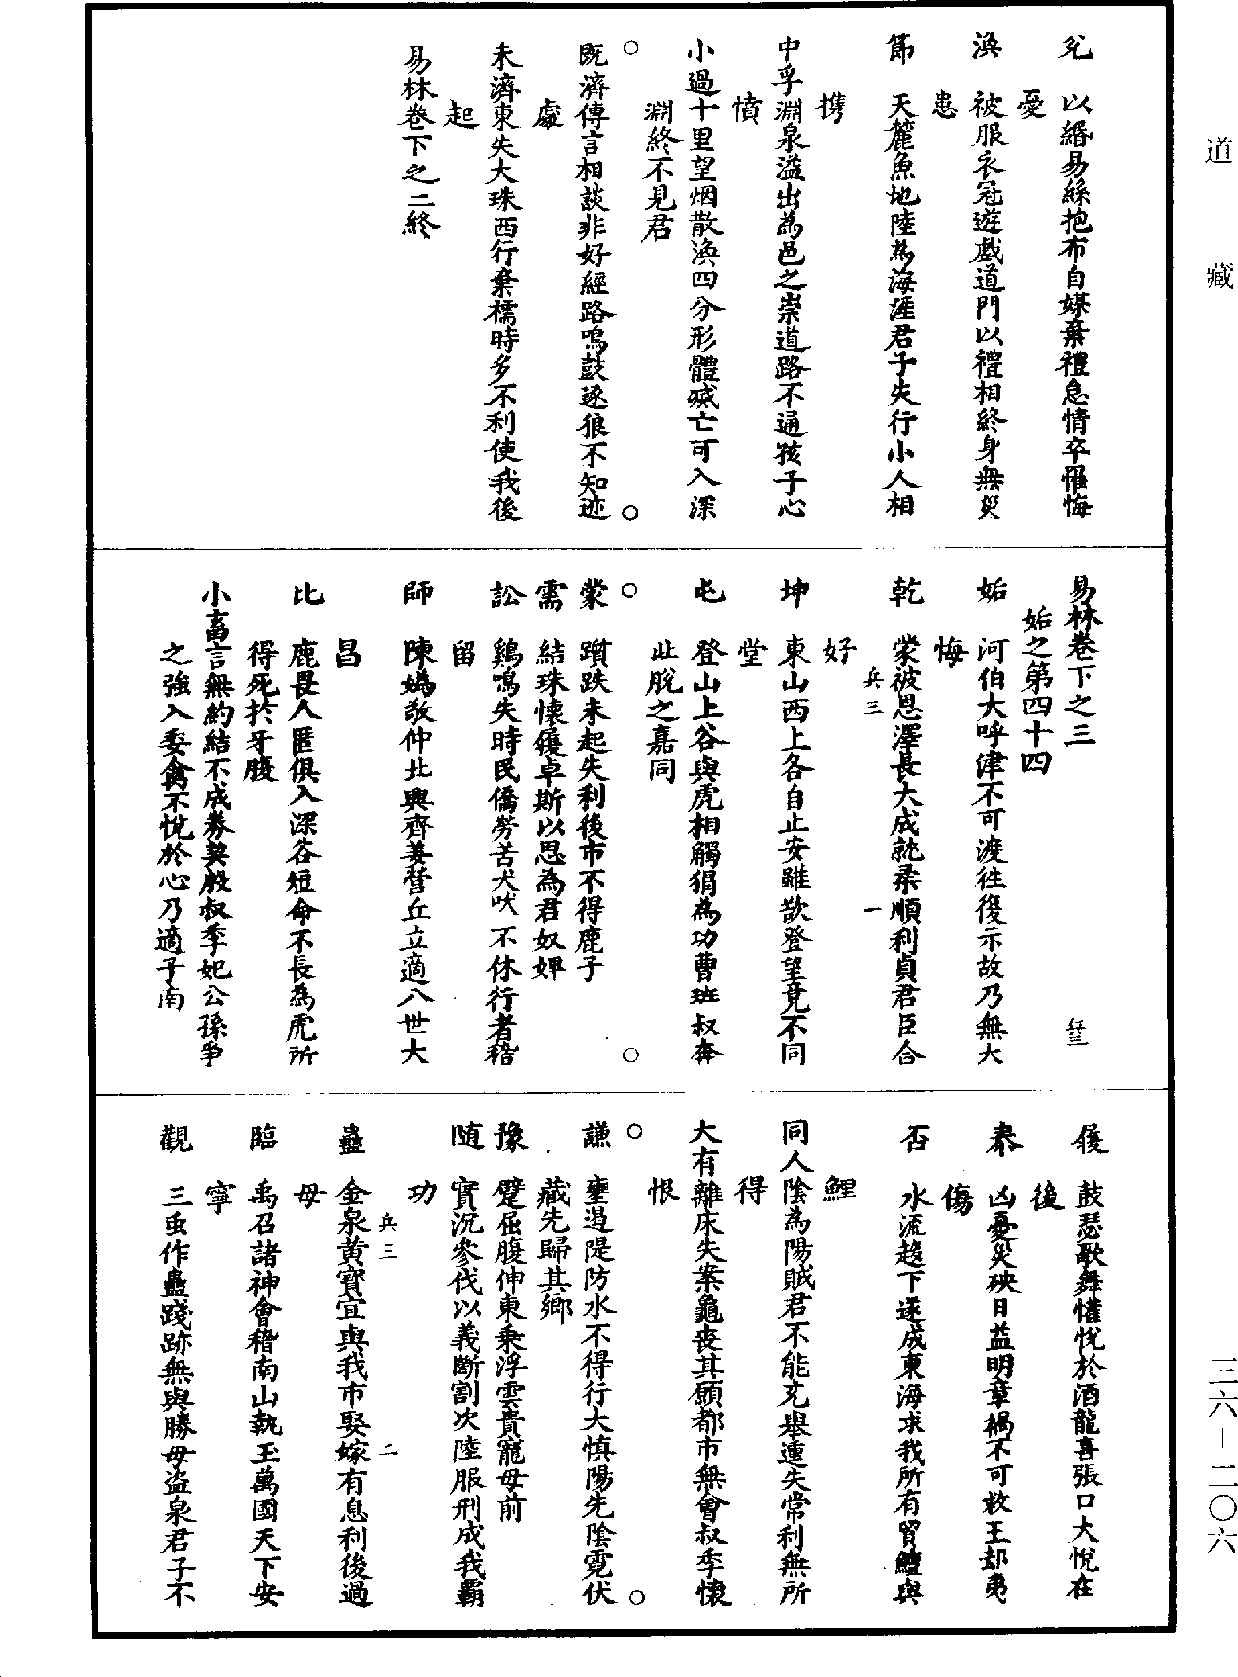 道藏
三六—二〇六
兌　以緡易絲抱布自媒棄禮急情卒罹悔
憂
渙　被服衣冠遊戲道門以禮相終身無災
患
節　天麓魚地陸為海涯君子失行小人相
攜
中孚淵泉溢出為邑之祟道路不通孩子心
憤
小過十里望烟散渙四分形體滅亡可入深
淵終不見君
既濟傳言相談非好經路鳴鼓逐狼不知迹
處
未濟東失大珠西行棄襦時多不利使我後
起
易林卷下之二終
易林卷下之三
姤之第四十四
姤　河伯大呼津不可渡往復示故乃無大
悔
乾　蒙被恩澤長大成就柔順利貞君臣合
好
兵三　一
坤　東山西上各自止安雖歆登望竟不同
堂
屯　登山上谷與虎相觸猬為功曹班叔奔
北脫之嘉同
蒙　躓跌未起失利後市不得鹿子
需　結珠懷履卓斯以思為君奴婢
訟　鷄鳴失時民僑勞苦犬吠不休行者稽
留
師　陳媯敬仲北興齊姜營丘立適八世大
昌
比　鹿畏人匿俱入深谷短命不長為虎所
得死於牙腹
小畜言無約結不成券契殷叔季妃公孫爭
之強入委禽不悅於心乃適子南
履　鼓瑟歌舞懽悅於酒龍喜張口大悅在
後
泰　凶憂災殃日益明章禍不可救王郄夷
傷
否　水流趨下遂成東海求我所有買鱣與
鯉
同人陰為陽賊君不能克舉連失常利無所
得
大有離床失案龜喪其願都市無會叔季懷
恨
謙　壅遏隄防水不得行大慎陽先陰霓伏
藏先歸其鄉
豫　躄屈腹伸東乘浮雲貴寵母前
隨　實沉參伐以義斷割次陸服刑成我霸
功
蠱　金泉黃寶宜與我市娶嫁有息利後過
母
兵三　二
臨　禹召諸神會稽南山執玉萬國天下安
寧
觀　三虫作蠱踐跡無與勝母盜泉君子不